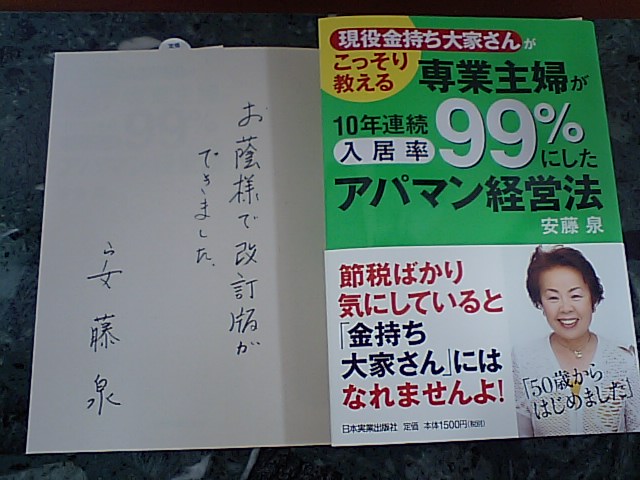 お蔭様で改訂版が
できました。
安藤泉
現役金持ち大家さんが
こっそり
教える
専業主婦が
10年連続
入居率
99%
にした
アパマン経営法
安藤 泉
節税ばかり
気にしていると
「金持ち
大家さん」には
なれませんよ!
「50歳から
はじめました」
日本実業出版社 定価 本体1500円(税別)